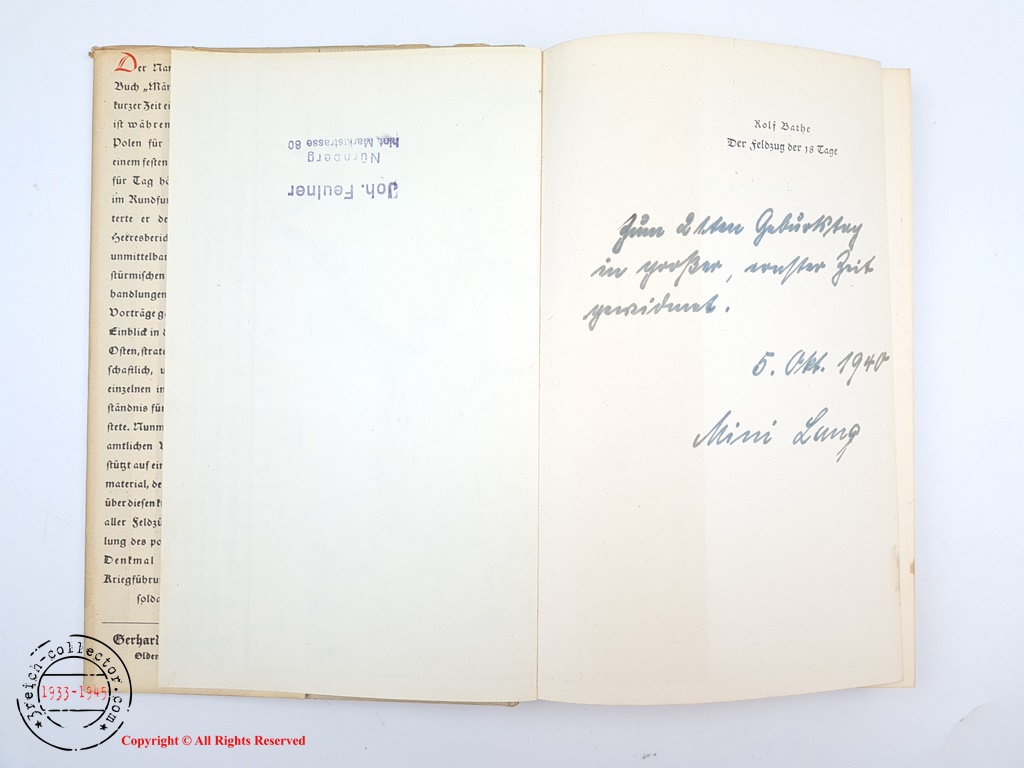 Der Nar
Buch „Mär
kurzer Zeit ei
ist währen
Polen für
einem festen
für Tag hö
im Rundfun
terte er de
Heeresberich
unmittelbar
stürmischen
handlungen
Vorträge ge
Einblick in d
Osten, strate
schaftlich, u
einzelnen in
ständnis für
stete. Nunm
amtlichen
stützt auf ein
material, de
über diesen
aller Feldzü
lung des po
Denkmal
Kriegführu
solda
Gerhard
Olden
Joh. Feulner
Nürnberg
hint. Marktstrasse 80
Rolf Bathe
Der Feldzug der 18 Tage
Zum 21ten Geburtstag
in großer, ernster Zeit
gewidmet.
5. Okt. 1940
Mini Lang
3reich-collector.com
1933-1945
Copyright © All Rights Reserved